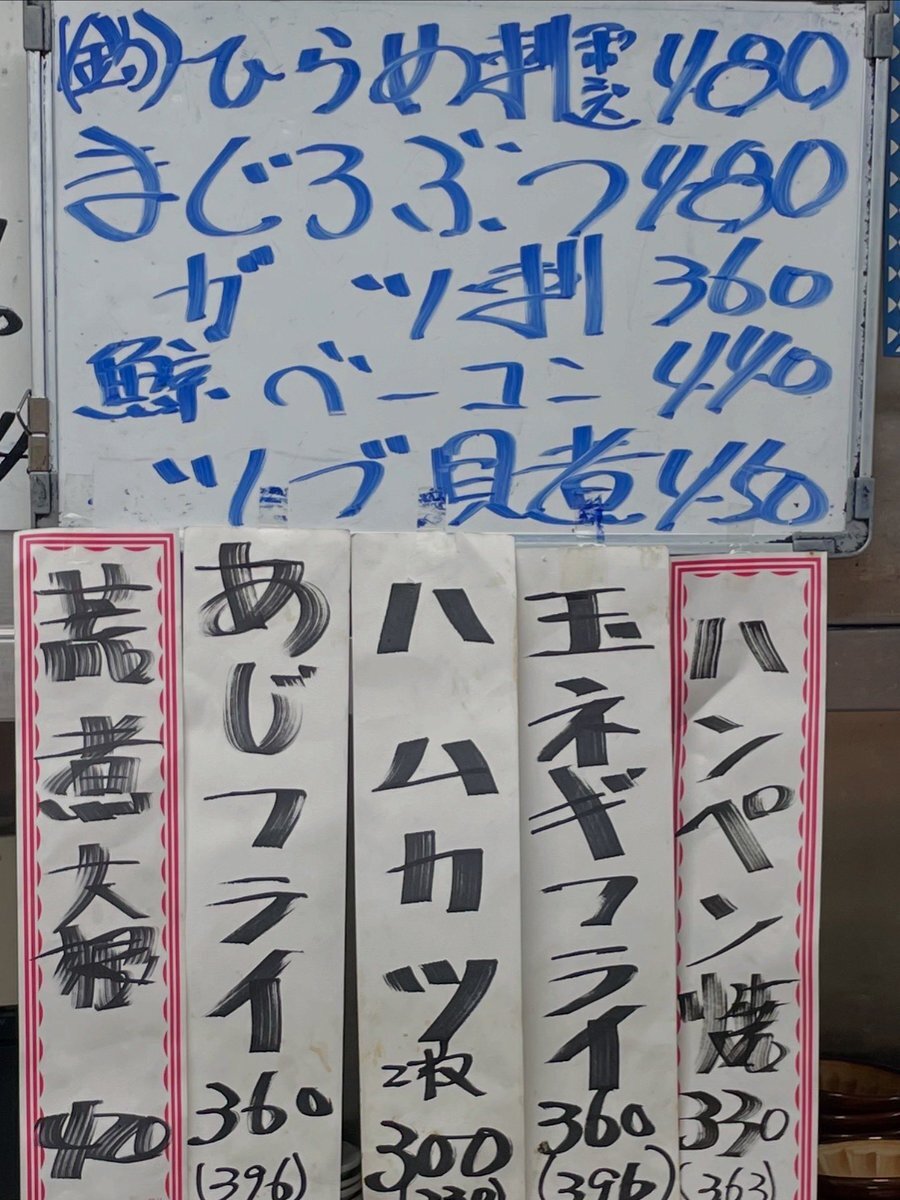 (釣)ひらめ刺 480
まじろぶつ 480
ガツ刺 360
鯨ベーコン 440
ツブ貝煮 450
ハンペン焼
330
(363)
玉ネギフライ
360
(396)
ハムカツ
2枚
300
(330)
あじフライ
360
(396)
煮大根